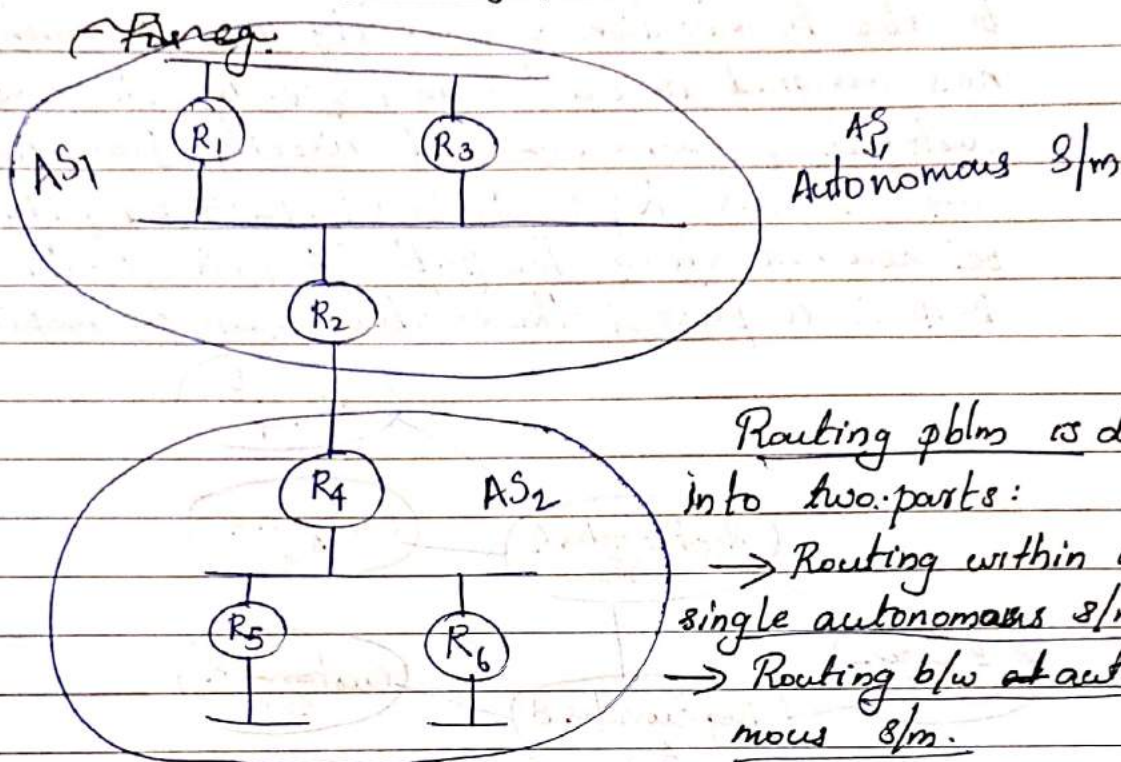 For eg.
R1
R3
AS1
AS
Autonomous S/m
R2
R4
AS2
Routing pblm is d
into two parts:
→ Routing within
single autonomous s/m
→ Routing b/w aut
mous s/m.
R5
R6